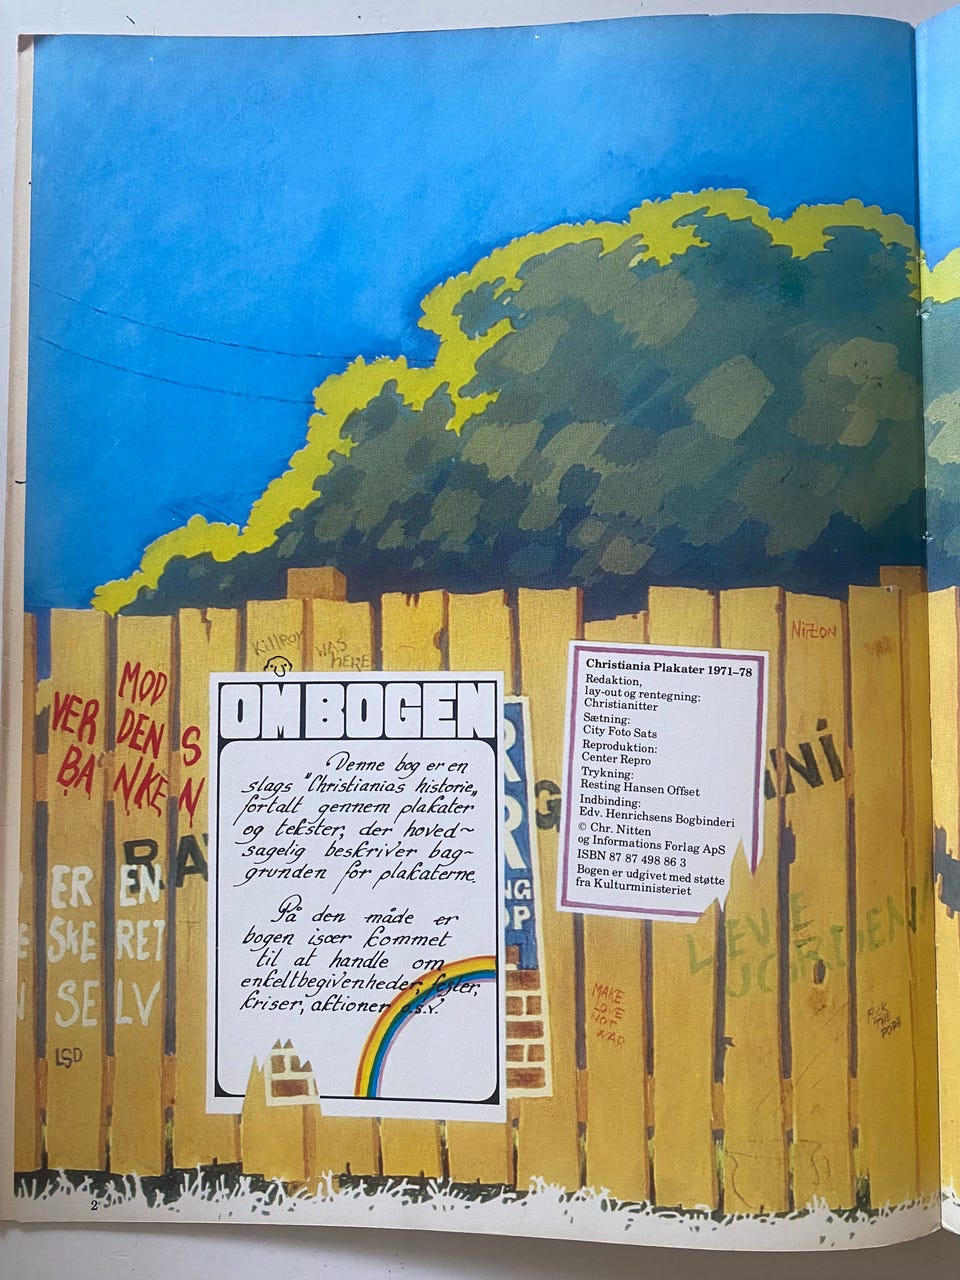 Killroy WAS
HERE
NiXON
MOD
VER DEN S
BANKEN
OM BOGEN
Denne bog er en
slags "Christianias historie„
fortalt gennem plakater
og tekster, der hoved~
sagelig beskriver bag-
grunden for plakaterne.
På den måde er
bogen især kommet
til at handle om
enkeltbegivenheder, fester,
kriser, aktioner o.s.v.
Christiania Plakater 1971–78
Redaktion,
lay-out og rentegning:
Christianitter
Sætning:
City Foto Sats
Reproduktion:
Center Repro
Trykning:
Resting Hansen Offset
Indbinding:
Edv. Henrichsens Bogbinderi
© Chr. Nitten
og Informations Forlag ApS
ISBN 87 87 498 86 3
Bogen er udgivet med støtte
fra Kulturministeriet
ER EN
SKE RET
SELV
LSD
MAKE
LOVE
NOT
WAR
LEVE
JORDEN
2